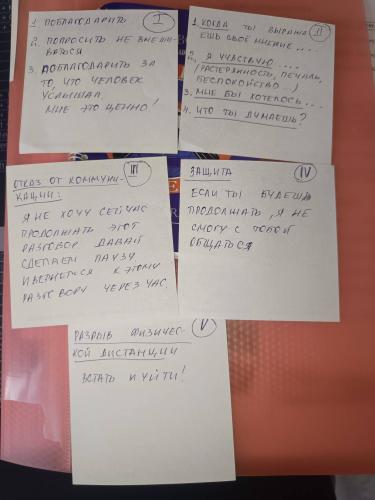 I
1 ПОБЛАГОДАРИТЬ
2. ПОПРОСИТЬ НЕ ВМЕШИ-
ВАТЬСЯ
3. ПОБЛАГОДАРИТЬ ЗА
ТО, ЧТО ЧЕЛОВЕК
УСЛЫШАЛ.
МНЕ ЭТО ЦЕННО!
II
1. КОГДА ТЫ ВЫРАЖА-
ЕШЬ СВОЁ МНЕНИЕ....
2. Я ЧУВСТВУЮ....
(РАСТЕРЯННОСТЬ, ПЕЧАЛЬ,
БЕСПОКОЙСТВО..)
3. МНЕ БЫ ХОТЕЛОСЬ...
4. ЧТО ТЫ ДУМАЕШЬ?
III
ОТКАЗ ОТ КОММУНИ-
КАЦИИ:
Я НЕ ХОЧУ СЕЙЧАС
ПРОДОЛЖАТЬ ЭТОТ
РАЗГОВОР. ДАВАЙ
СДЕЛАЕМ ПАУЗУ
И ВЕРНЕМСЯ К ЭТОМУ
РАЗГОВОРУ ЧЕРЕЗ ЧАС.
IV
ЗАЩИТА
ЕСЛИ ТЫ БУДЕШЬ
ПРОДОЛЖАТЬ, Я НЕ
СМОГУ С ТОБОЙ
ОБЩАТЬСЯ
V
РАЗРЫВ ФИЗИЧЕС-
КОЙ ДИСТАНЦИИ
ВСТАТЬ И УЙТИ!